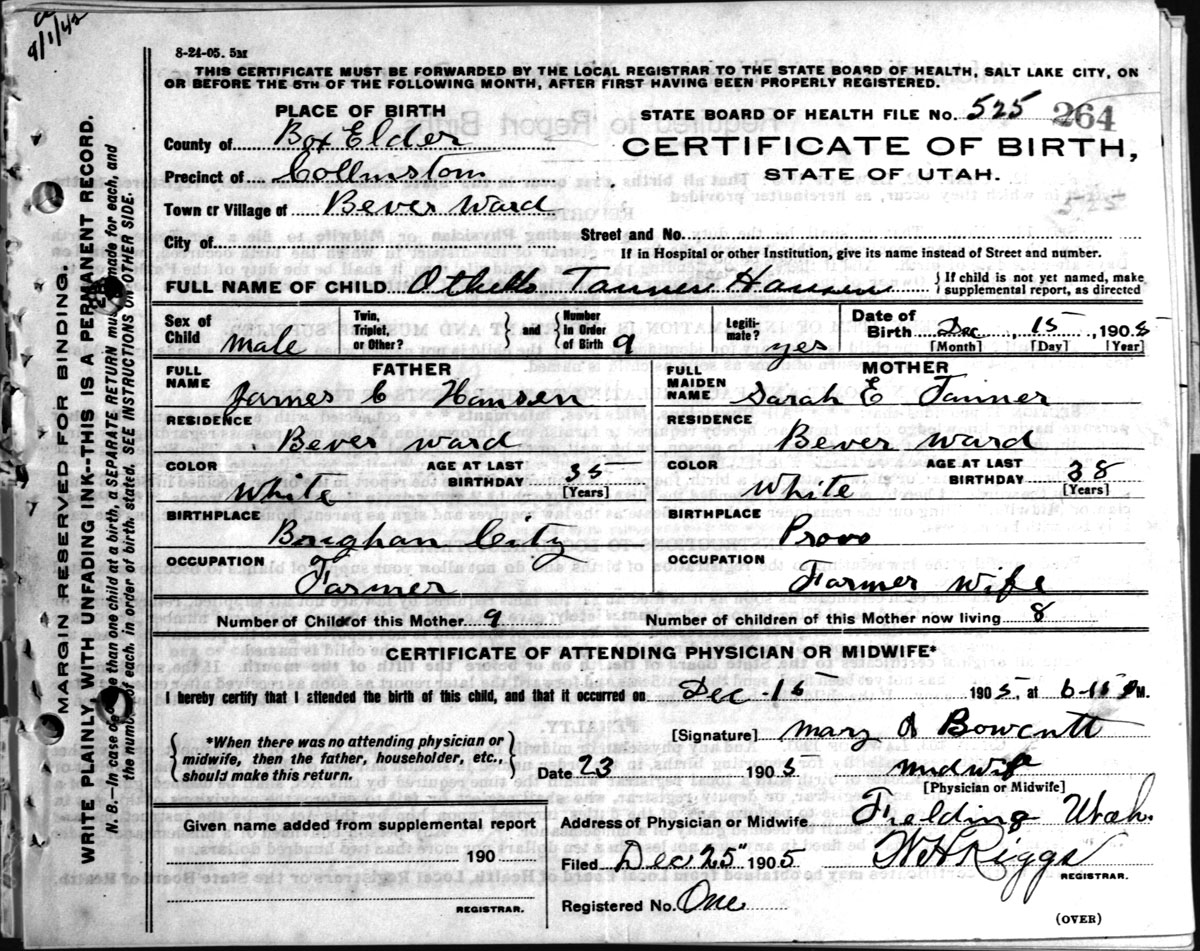 9/1/42
8-24-05. 5M
THIS CERTIFICATE MUST BE FORWARDED BY THE LOCAL REGISTRAR TO THE STATE BOARD OF HEALTH, SALT LAKE CITY, ON
OR BEFORE THE 5TH OF THE FOLLOWING MONTH, AFTER FIRST HAVING BEEN PROPERLY REGISTERED.
PLACE OF BIRTH
County of Box Elder
Precinct of Collinstom
Town or Village of Bever Ward
City of
STATE BOARD OF HEALTH FILE No. 525 264
CERTIFICATE OF BIRTH,
STATE OF UTAH.
Street and No.
If in Hospital or other Institution, give its name instead of Street and number.
FULL NAME OF CHILD Othello Tanner Hansen
If child is not yet named, make
supplemental report, as directed
Sex of Child male
Twin, Triplet, or Other?
and Number In Order of Birth 9
Legiti- mate? yes
Date of Birth Dec 15 1905
[Month] [Day] [Year]
FATHER
FULL NAME James C Hansen
RESIDENCE Bever ward
COLOR White AGE AT LAST BIRTHDAY 35 [Years]
BIRTHPLACE Brighan City
OCCUPATION Farmer
MOTHER
FULL MAIDEN NAME Sarah E Tanner
RESIDENCE Bever ward
COLOR White AGE AT LAST BIRTHDAY 38 [Years]
BIRTHPLACE Provo
OCCUPATION Farmer Wife
Number of Child of this Mother 9 Number of children of this Mother now living 8
CERTIFICATE OF ATTENDING PHYSICIAN OR MIDWIFE*
I hereby certify that I attended the birth of this child, and that it occurred on Dec-15 1905, at 6-15 P M.
*When there was no attending physician or
midwife, then the father, householder, etc.,
should make this return.
[Signature] Mary A Bowcutt
Date 23 1905 midwife
[Physician or Midwife]
Given name added from supplemental report
190
REGISTRAR.
Address of Physician or Midwife Fielding Utah.
Filed Dec 25" 1905 W H Riggs
REGISTRAR.
Registered No. One
(OVER)
MARGIN RESERVED FOR BINDING.
WRITE PLAINLY, WITH UNFADING INK--THIS IS A PERMANENT RECORD.
N. B.—In case of more than one child at a birth, a SEPARATE RETURN must be made for each, and
the number of each, in order of birth, stated. SEE INSTRUCTIONS ON OTHER SIDE.